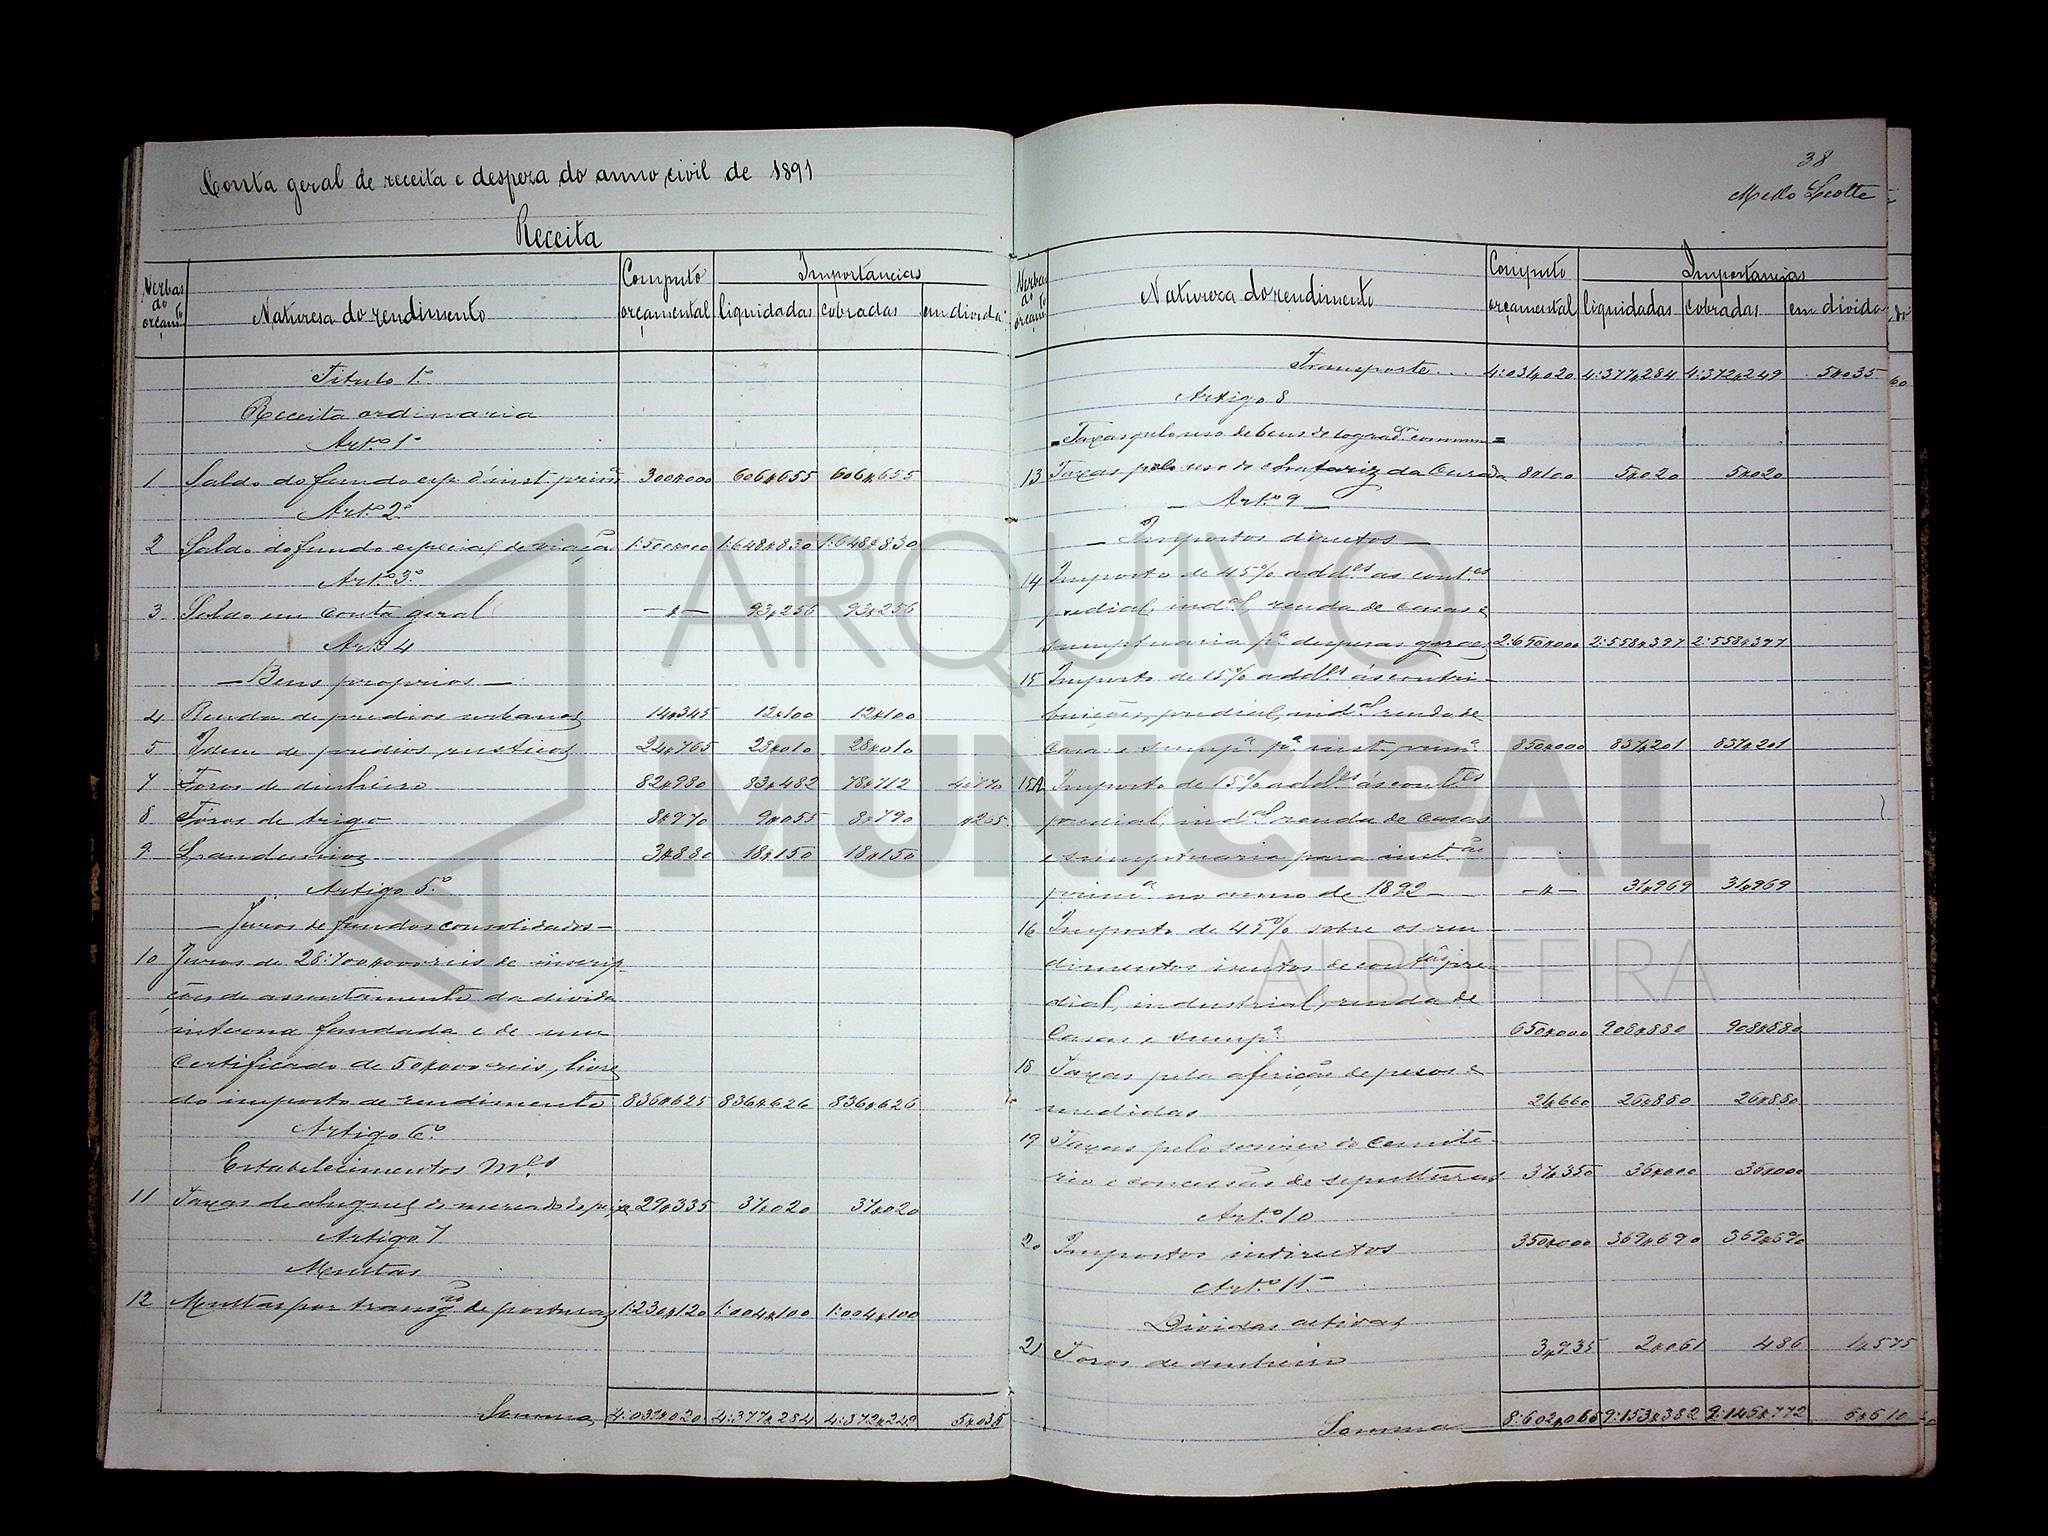 Conta geral de receita e despeza do anno civil de 1891
Receita
Verbas do orçamto
Natureza do rendimento
Computo orçamental
Importancias
liquidadas cobradas em divida
Titulo 1º
Receita ordinaria
Artº 1º
1 Saldo do fundo esp. d'inst. primª 300$000 606$655 606$655
Artº 2º
2 Saldo do fundo especial de viação 1:500$000 1:648$830 1:648$830
Artº 3º
3 Saldo em conta geral —$— 93$256 93$256
Artº 4
— Bens proprios —
4 Renda de predios urbanos 14$345 12$100 12$100
5 Idem de predios rusticos 24$765 28$010 28$010
7 Foros de dinheiro 82$980 83$482 78$712 4$770
8 Foros de trigo 8$970 9$055 8$790 $265
9 Laudemios 3$880 18$150 18$150
Artigo 5º
— Juros de fundos consolidados —
10 Juros de 28:700$000 reis de inscrip-
ções de assentamento da divida
interna fundada e de um
certificado de 50$000 reis, livres
do imposto de rendimento 836$625 836$626 836$626
Artigo 6º
Estabelecimentos Mes
11 Taxas de alugueis do mercado de peixe 29$335 37$020 37$020
Artigo 7
Multas
12 Multas por transgão de posturas 1:230$120 1:004$100 1:004$100
Somma 4:031$020 4:377$284 4:372$249 5$035
38
Mello Leotte
Verbas do orçamto
Natureza do rendimento
Computo orçamental
Importancias
liquidadas cobradas em divida
Transporte... 4:031$020 4:377$284 4:372$249 5$035
Artigo 8
= Taxas pelo uso de bens de logradº commum =
13 Taxas pelo uso do chafariz da 8$100 5$020 5$020
— Artº 9 —
— Impostos directos —
14 Imposto de 45% addes ás contes
predial, indal, renda de casas e
sumptuaria pª despesas geraes 2:650$000 2:558$397 2:558$397
15 Imposto de 15% addes ás contri-
buições, predial, indal renda de
casas e sumpª pª inst. primª 850$000 837$201 837$201
15A Imposto de 15% addes ás contes
predial, indal renda de casas
e sumptuaria para instão
primª no anno de 1892 — —$— 31$969 31$969
16 Imposto de 45% sobre os ren-
dimentos isentos de contção pre-
dial, industrial, renda de
casas e sumpª 650$000 908$880 908$880
18 Taxas pela aferição de pesos e
medidas 26$660 26$880 26$880
19 Taxas pelo serviço do cemite-
rio e concessão de sepulturas 31$350 36$000 36$000
Artº 10
20 Impostos indirectos 350$000 369$690 369$690
Artº 11º
Dividas activas
21 Foros de dinheiro 3$935 2$061 486 1$575
Somma 8:602$065 9:153$382 9:146$772 6$610
ARQUIVO
MUNICIPAL
ALBUFEIRA